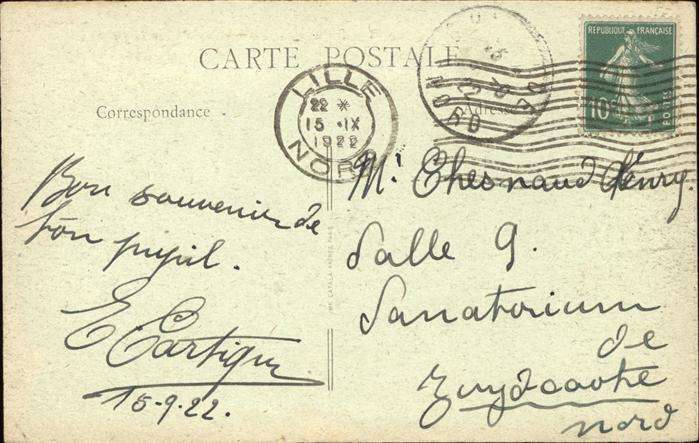 CARTE POSTALE
REPUBLIQUE FRANÇAISE
10c
POSTES
LILLE
22 *
15 · IX
1922
NORD
NORD
Correspondance
Adresse
Bon souvenir de
ton pupil.
E Cartigny
15-9-22.
Mr Chesnaud Henry
Salle 9.
Sanatorium
de
Zuydcoote
Nord